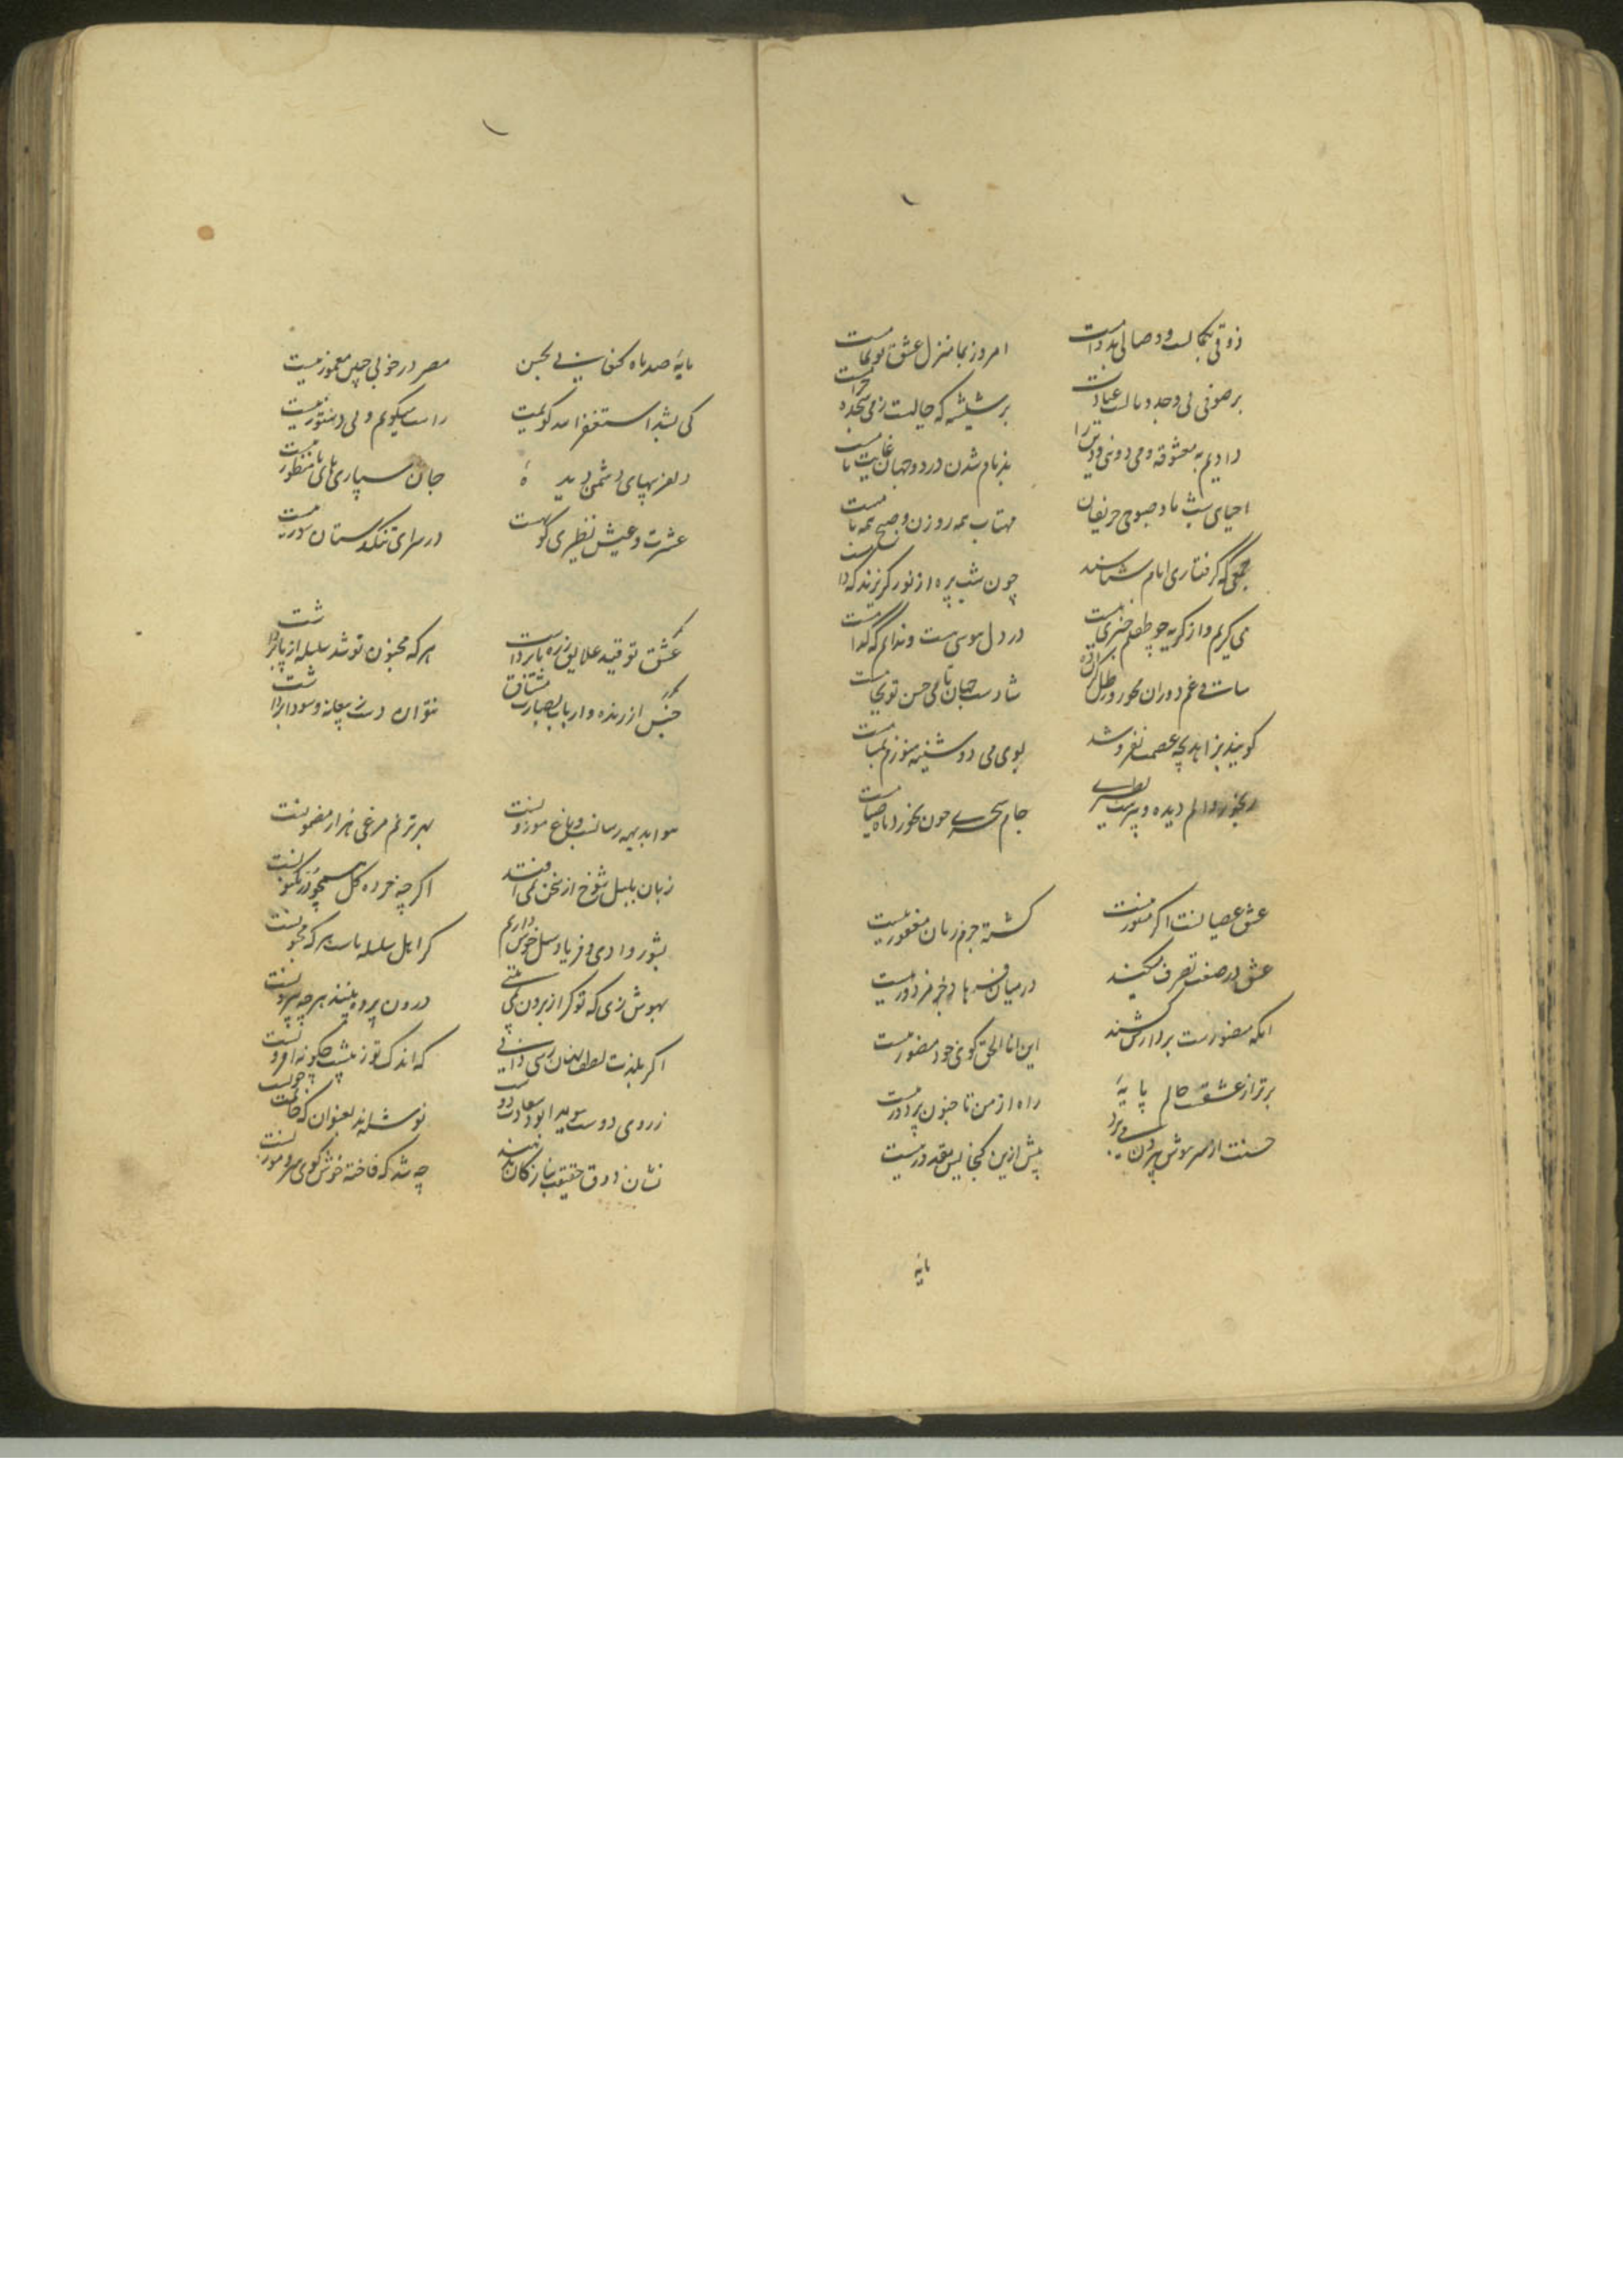 ذوقی بکمالست و وصالی بدوامست امروز بما منزل عشق تو نماست
بر صوفی بی وجد وبالست عبادت بر شیشه که خالیست ز می سجده حرامست
دادیم به معشوقه و می دنیی و دین را بدنام شدن در دو جهان غایت نامست
احیای شب ما و صبوحی حریفان مهتاب همه روزن و صبح همه بامست
جمعی که گرفتاری ایام شناسند چون شب پره از نور گریزند که دامست
می گریم و از گریه چو طفلم خبری نیست در دل هوسی هست و ندانم که کدامست
غم دوران مخور و رطل گران ده شادست جهان تا می حسن تو بجامست
گویند بزاهد بچه عصمت نفروشد بوی می دوشینه هنوزم بمشامست
رنجور و الم دیده و پیرست نظیری جام سحری چون نخورد ماه صیامست
عشق عصیانست اگر مستور نیست کشته جرم زبان مغفور نیست
عشق در صنعت تصرف میکند در میان فرهاد جز مزدور نیست
آنکه منصورست بر دارش کشند این انا الحق گوی خود منصور نیست
برتر از عشقست عالم پایهٔ راه از من تا جنون پر دور نیست
حسنت از سر هوش بیرون می برد بیش ازین گنجایش مقدور نیست
مایهٔ
مایهٔ صد ماه کنعانی بحسن مصر در خوبی چنین معمور نیست
کی بشد استغفر الله گویمت راست میگویم ولی دستور نیست
دلفریبهای دشمن دیدهٔ جان سپاری های ما منظور نیست
عشرت و عیش نظیری گو بهست در سرای تنگدستان سور نیست
عشق تو قید علایق ز ره ما برداشت هر که مجنون تو شد سلسله از پا برداشت
جنس ارزنده و ارباب بصارت مشتاق نتوان دست ز بیعانه و سودا برداشت
هوا بدیهه رسانست و باغ موزونست بهر ترنم مرغی هزار مضمونست
زبان بلبل شوخ از سخن نمی افتد اگر چه خرده گل همچو زر مکنونست
بشور وادی و فریاد سیل خوش داریم کز اهل سلسله ماست هر که مجنونست
بهوش زی که تو گر از برون نمی بینی درون پرده ببینند هر چه بیرونست
اگر بلذت لطف نهان رسی دانی که اندک تو ز بیش چگونه افزونست
ز روی دوست سعادت نوشته اند بعنوان که
نشان ذوق حقیقت چه شد که فاخته خوش گوی و سرو موزونست